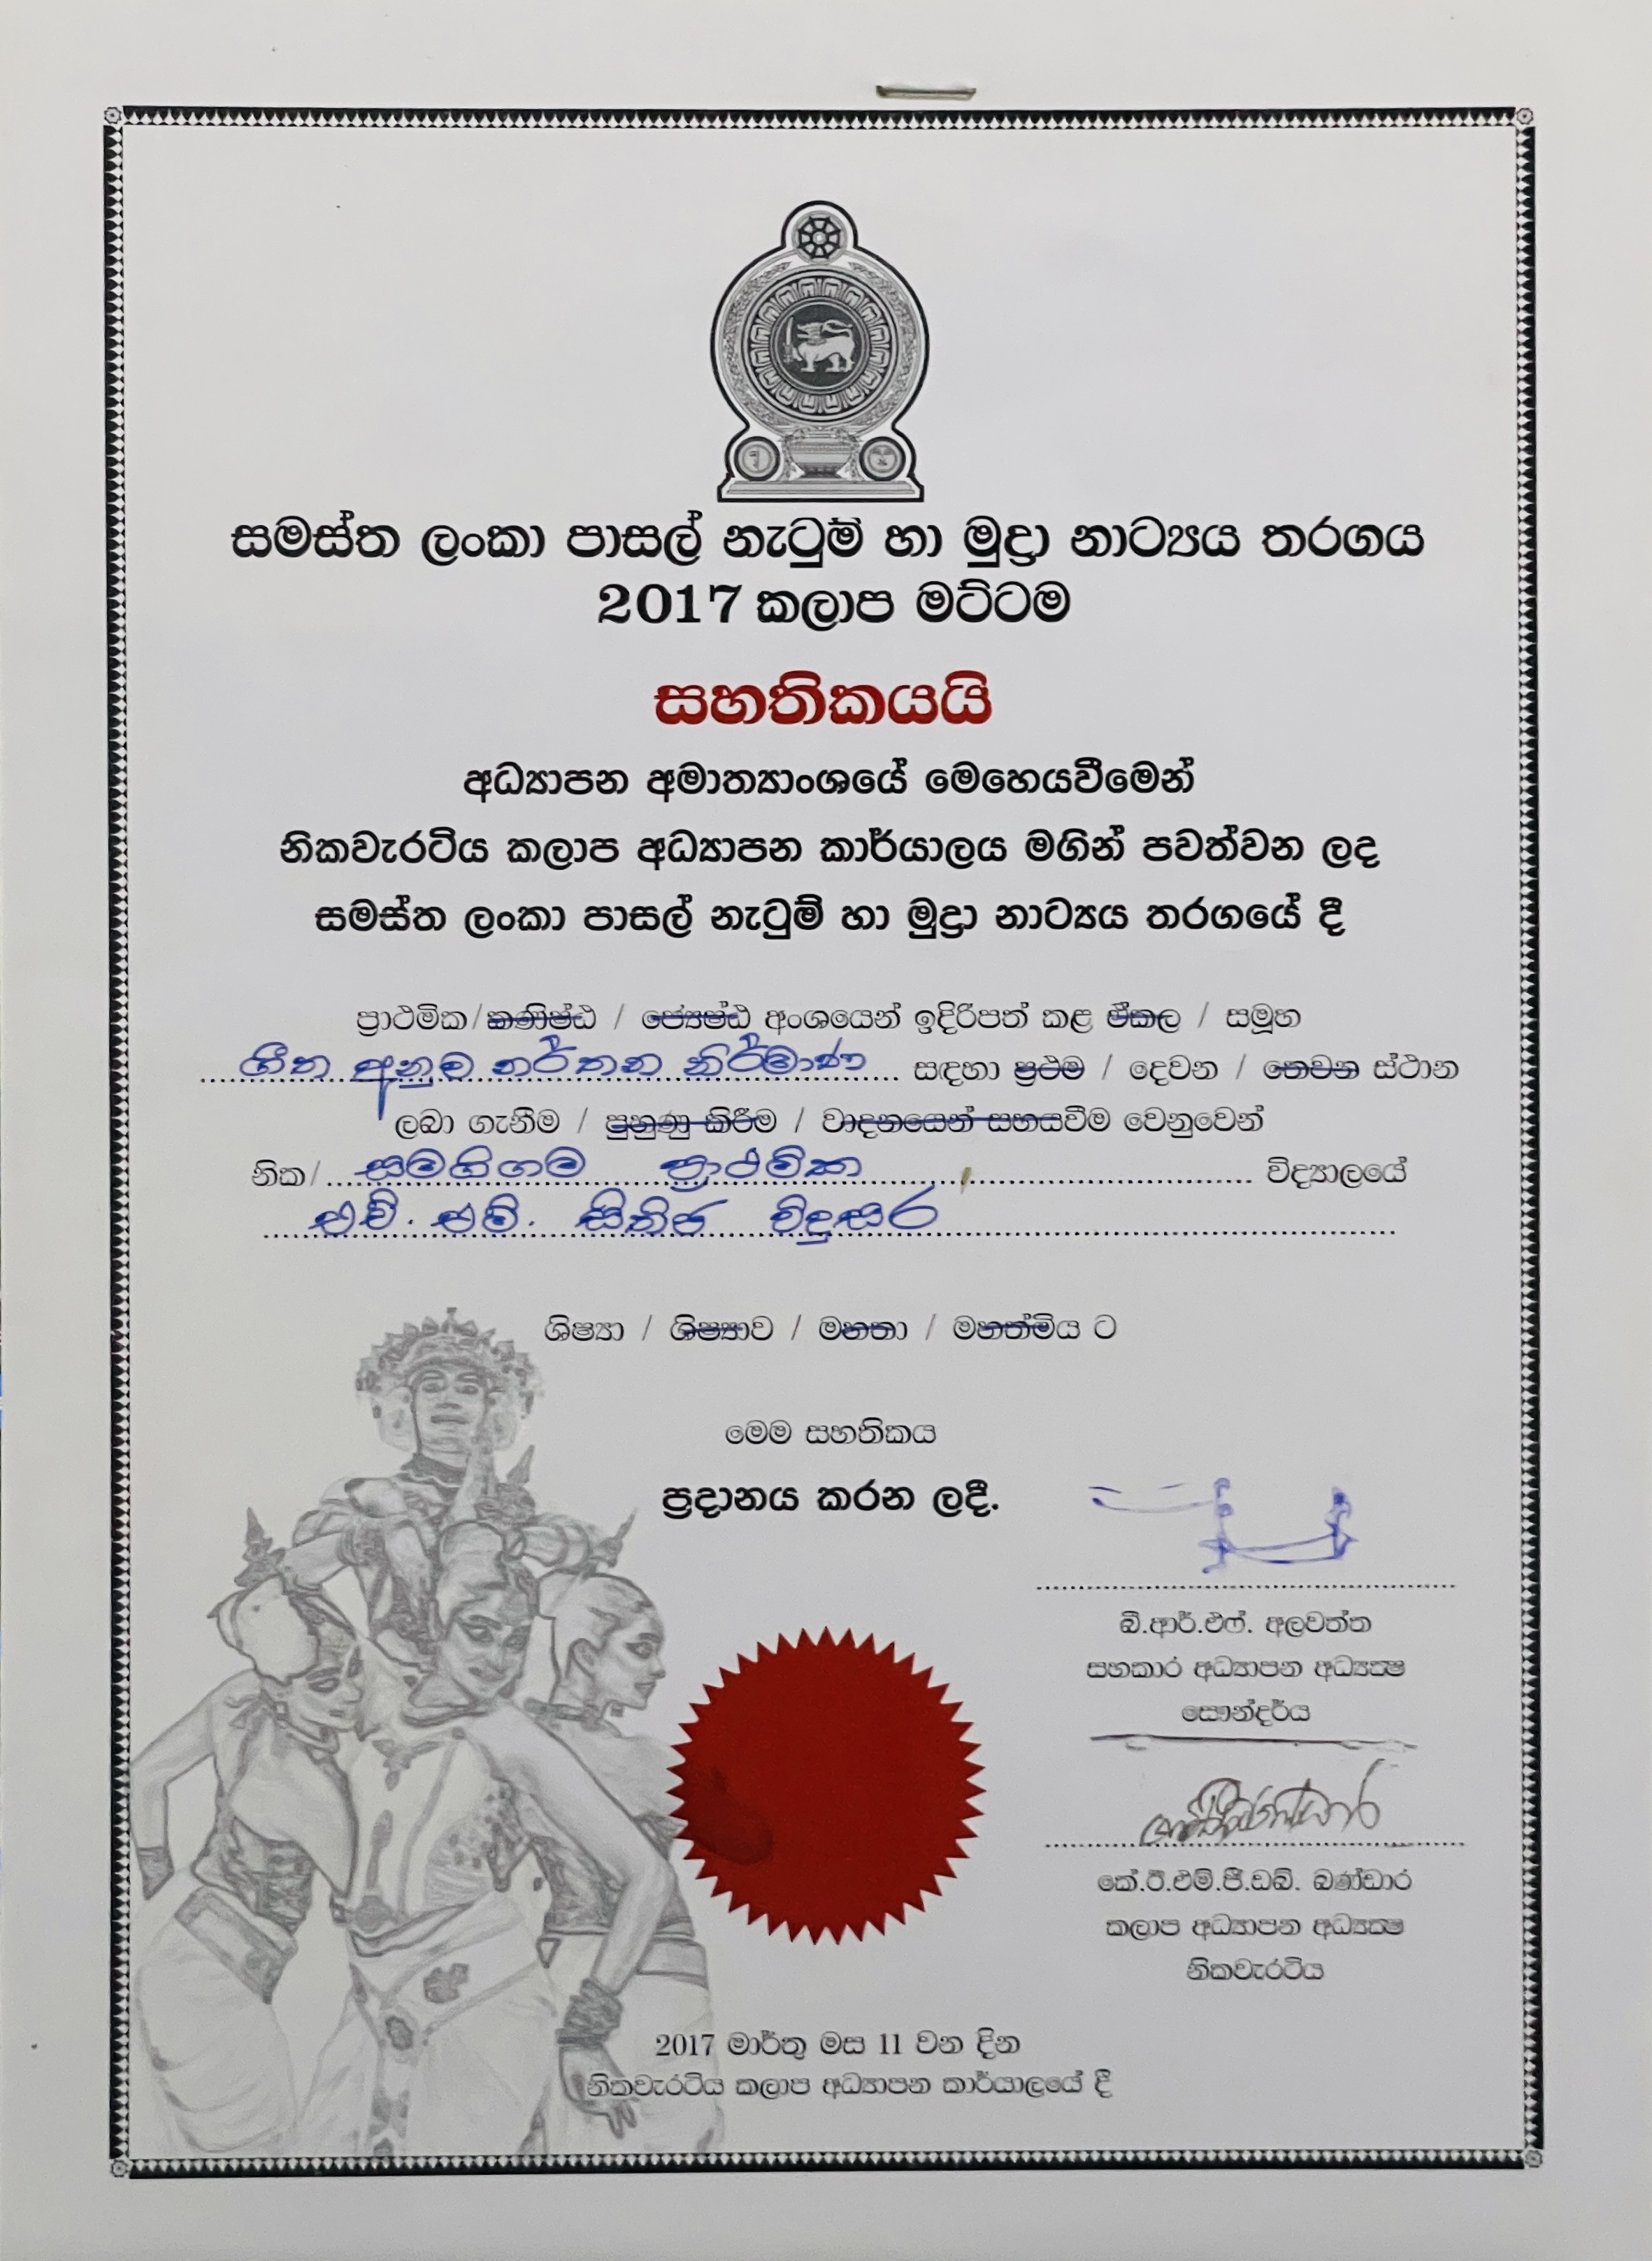 සමස්ත ලංකා පාසල් නැටුම් හා මුද්‍රා නාට්‍යය තරගය
2017 කලාප මට්ටම
සහතිකයයි
අධ්‍යාපන අමාත්‍යාංශයේ මෙහෙයවීමෙන්
නිකවැරටිය කලාප අධ්‍යාපන කාර්යාලය මගින් පවත්වන ලද
සමස්ත ලංකා පාසල් නැටුම් හා මුද්‍රා නාට්‍යය තරගයේ දී
ප්‍රාථමික/කණිෂ්ඨ / ජ්‍යෙෂ්ඨ අංශයෙන් ඉදිරිපත් කළ ඒකල / සමූහ
ගීත අනුව නර්තන නිර්මාණ සඳහා ප්‍රථම / දෙවන / තෙවන ස්ථාන
ලබා ගැනීම / පුහුණු කිරීම / වාදනයෙන් සහයවීම වෙනුවෙන්
නික/ සමගිගම ප්‍රාථමික විද්‍යාලයේ
එච්. එම්. සිතිජ විදුසර
ශිෂ්‍යා / ශිෂ්‍යාව / මහතා / මහත්මිය ට
මෙම සහතිකය
ප්‍රදානය කරන ලදී.
බී.ආර්.එෆ්. අලවත්ත
සහකාර අධ්‍යාපන අධ්‍යක්ෂ
සෞන්දර්ය
කේ.ඊ.එම්.ජී.ඩබ්. බණ්ඩාර
කලාප අධ්‍යාපන අධ්‍යක්ෂ
නිකවැරටිය
2017 මාර්තු මස 11 වන දින
නිකවැරටිය කලාප අධ්‍යාපන කාර්යාලයේ දී